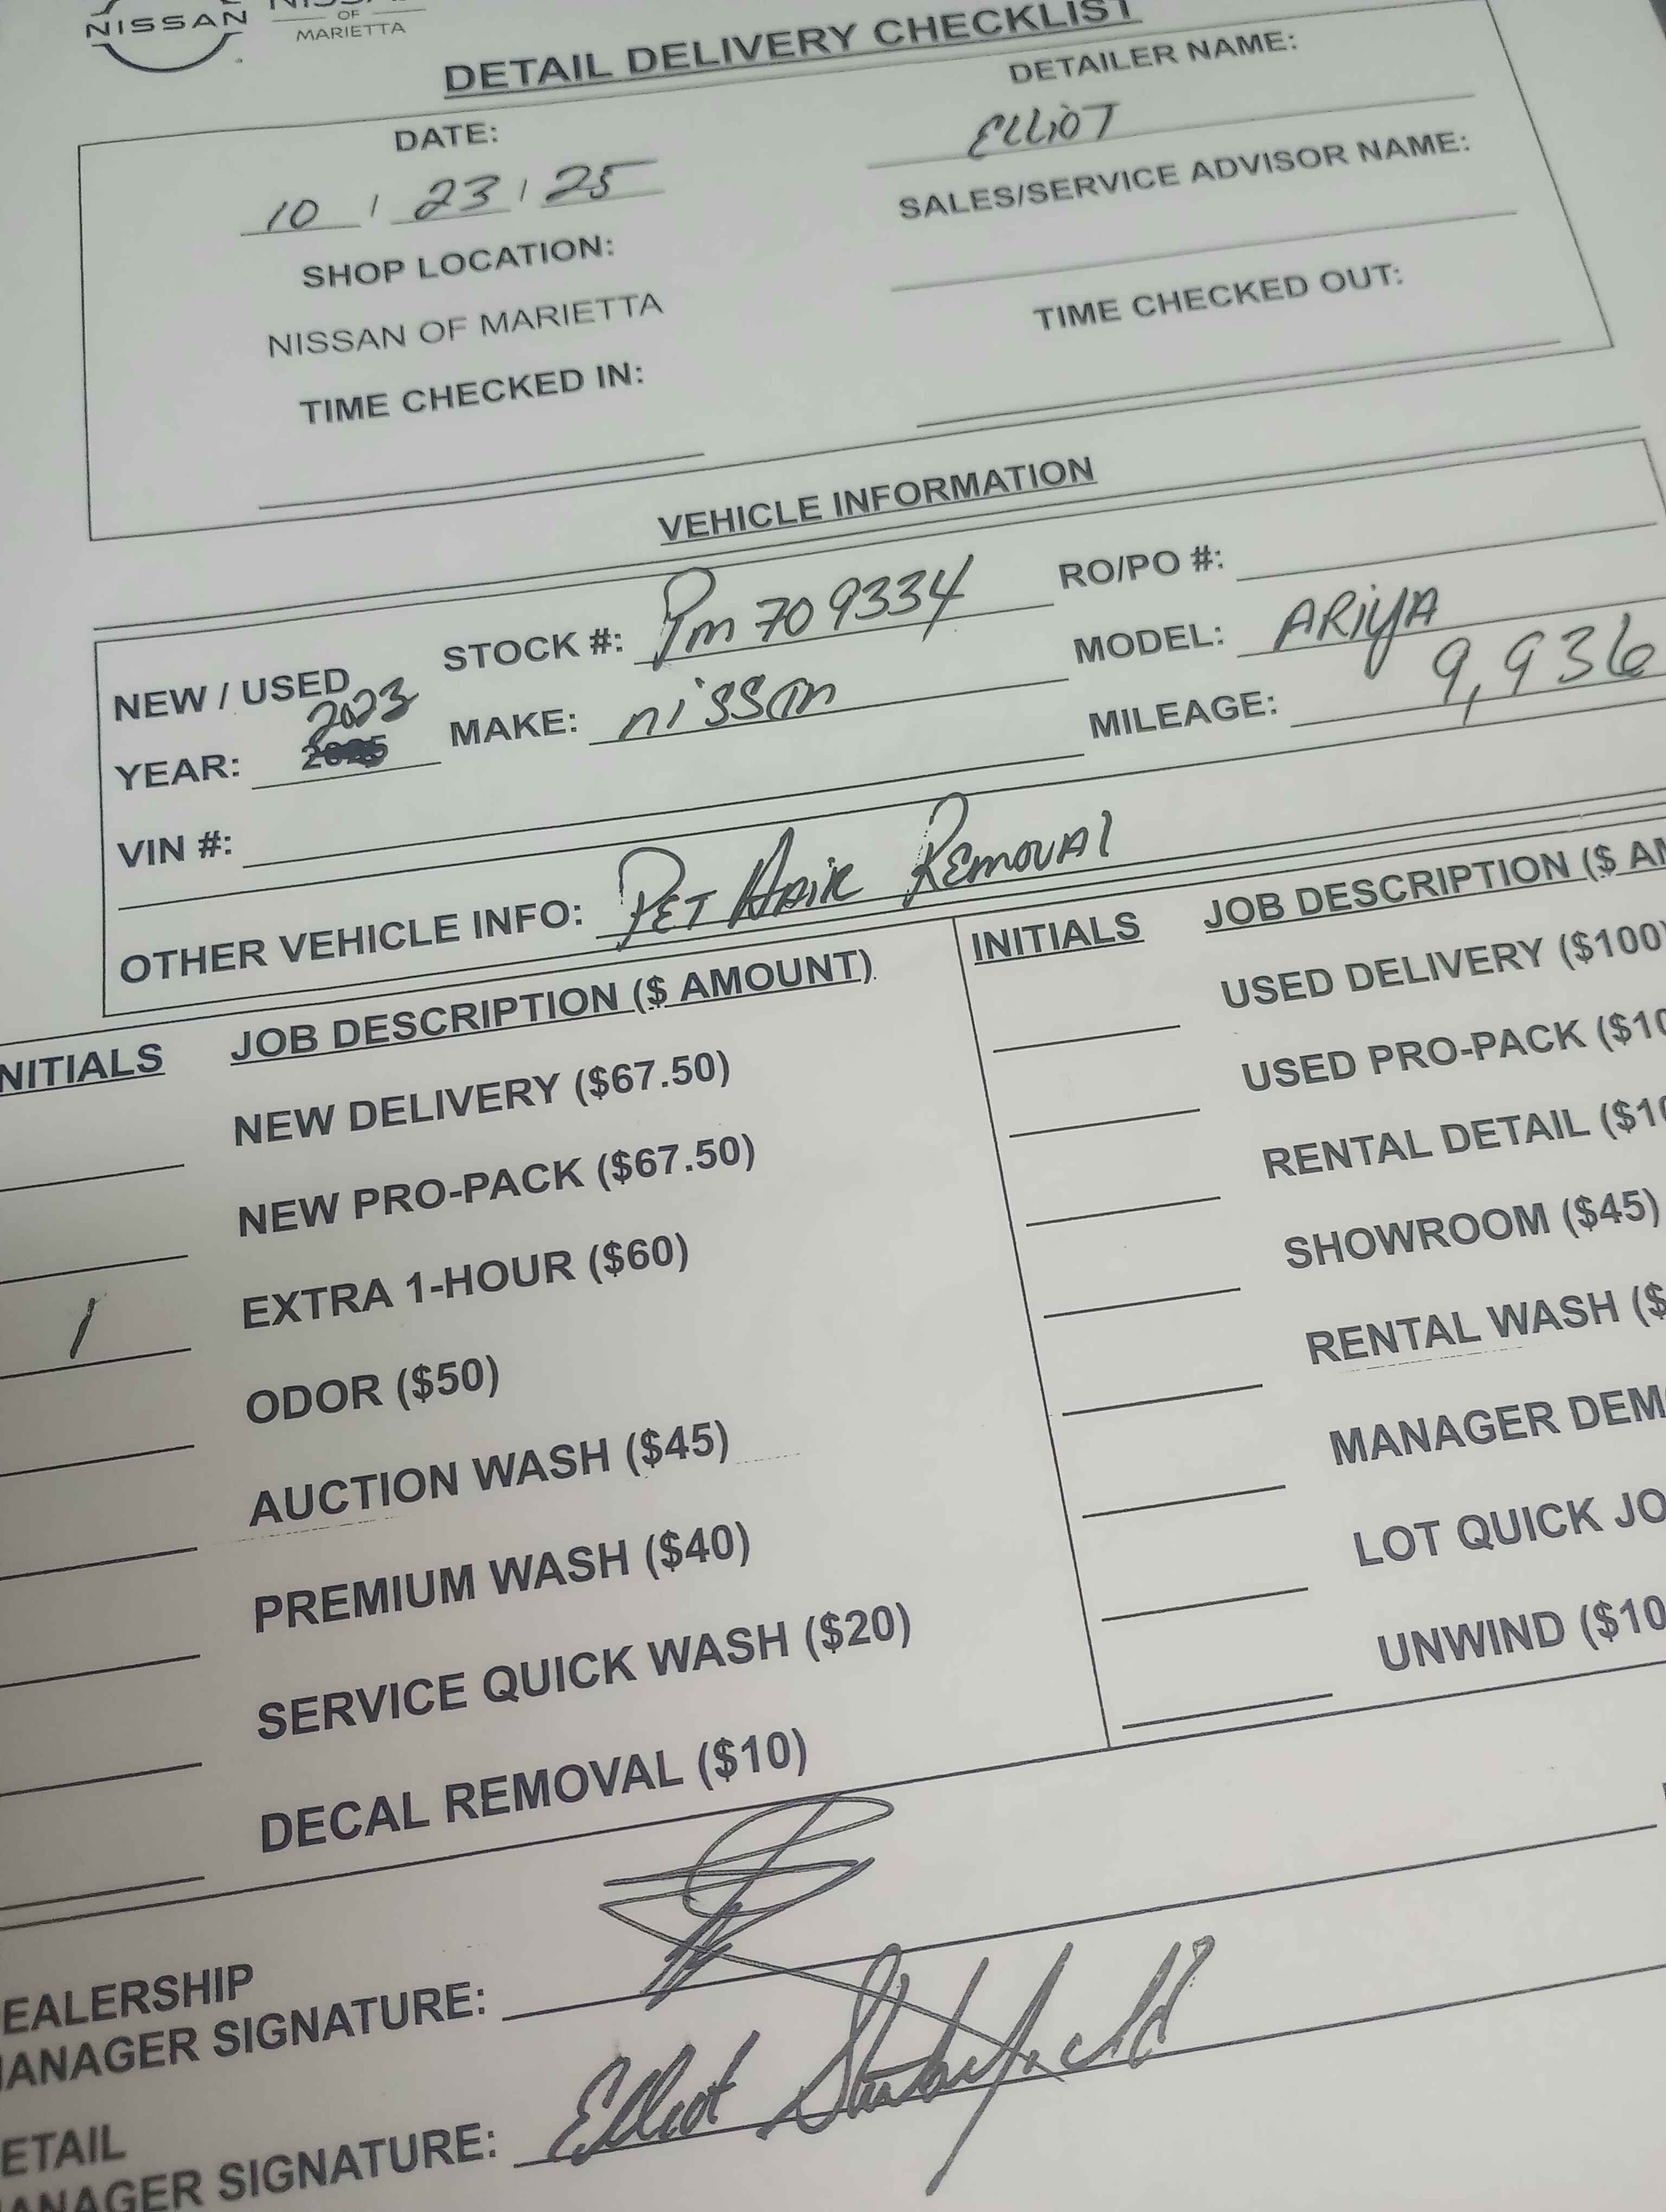 NISSAN
OF
MARIETTA
DETAIL DELIVERY CHECKLIST
DATE:
10 / 23 / 25
DETAILER NAME:
ELLIOT
SHOP LOCATION:
NISSAN OF MARIETTA
SALES/SERVICE ADVISOR NAME:
TIME CHECKED IN:
TIME CHECKED OUT:
VEHICLE INFORMATION
NEW / USED STOCK #: Pm709334 RO/PO #:
YEAR: 2023 MAKE: nissan MODEL: ARiyA
VIN #: MILEAGE: 9,936
OTHER VEHICLE INFO: PET HAIR REMOVAl
NITIALS JOB DESCRIPTION ($ AMOUNT)
NEW DELIVERY ($67.50)
NEW PRO-PACK ($67.50)
1 EXTRA 1-HOUR ($60)
ODOR ($50)
AUCTION WASH ($45)
PREMIUM WASH ($40)
SERVICE QUICK WASH ($20)
DECAL REMOVAL ($10)
INITIALS JOB DESCRIPTION ($ AM
USED DELIVERY ($100)
USED PRO-PACK ($10
RENTAL DETAIL ($10
SHOWROOM ($45)
RENTAL WASH ($
MANAGER DEM
LOT QUICK JO
UNWIND ($10
EALERSHIP
ANAGER SIGNATURE:
ETAIL
ANAGER SIGNATURE: Elliot